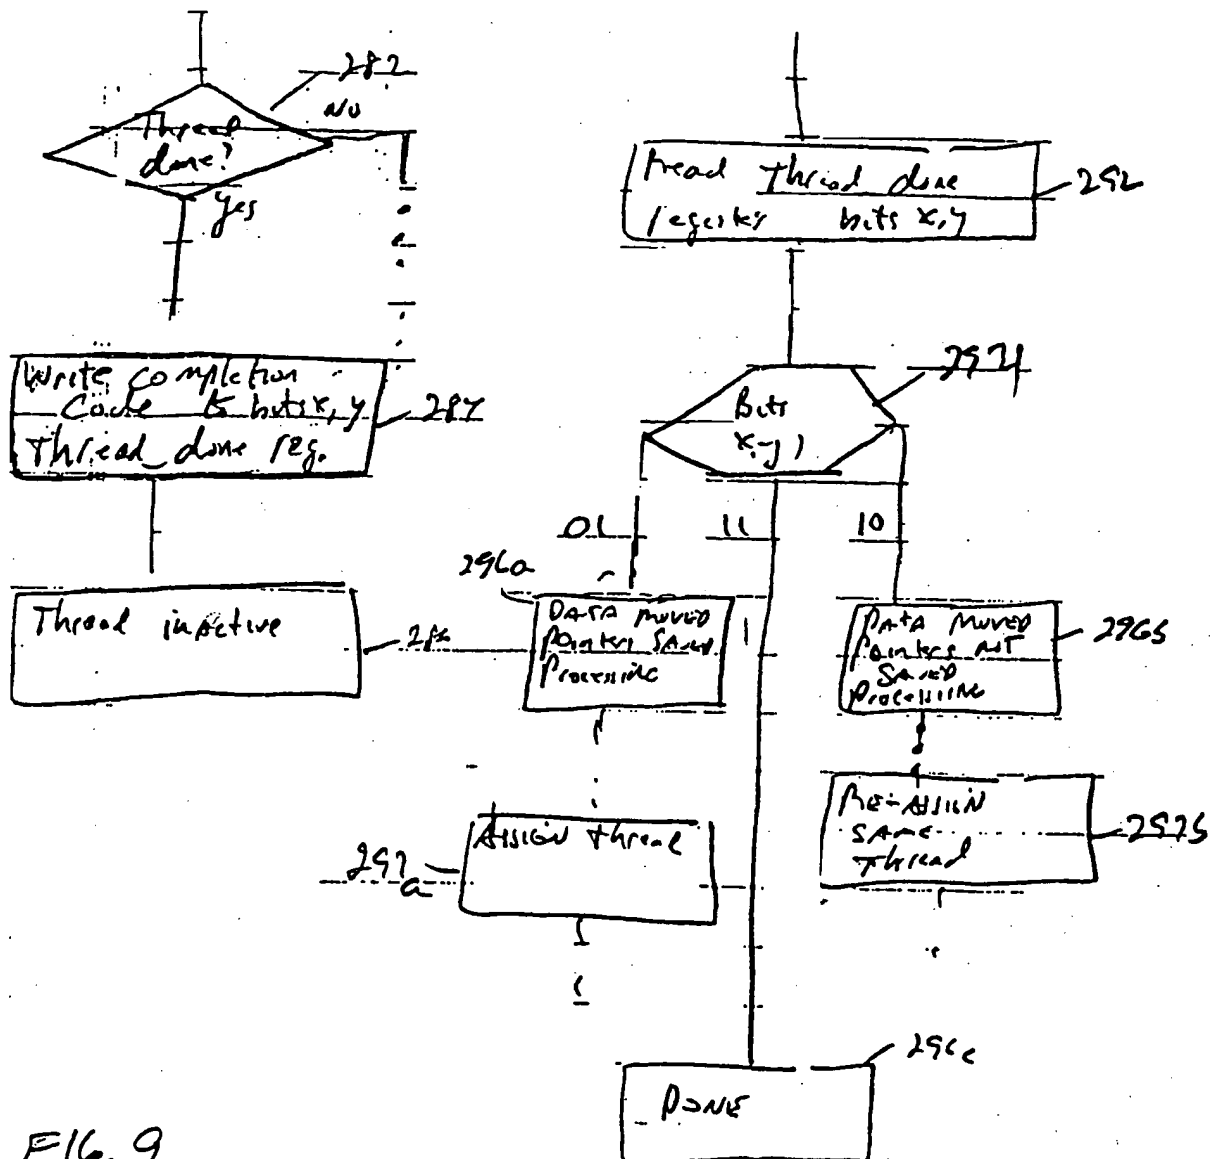 282
No
Thread
done?
yes
Write completion
code to bits x, y
Thread_done reg.
284
Thread inactive
286
Read Thread done
registers bits x, y
292
294
Bits
x, y
01
11
10
296a
DATA MOVED
pointers SAVED
Processing
DATA MOVED
pointers NOT
SAVED
processing
296b
Assign thread
297
a
RE-ASSIGN
SAME
Thread
297b
296c
DONE
FIG. 9